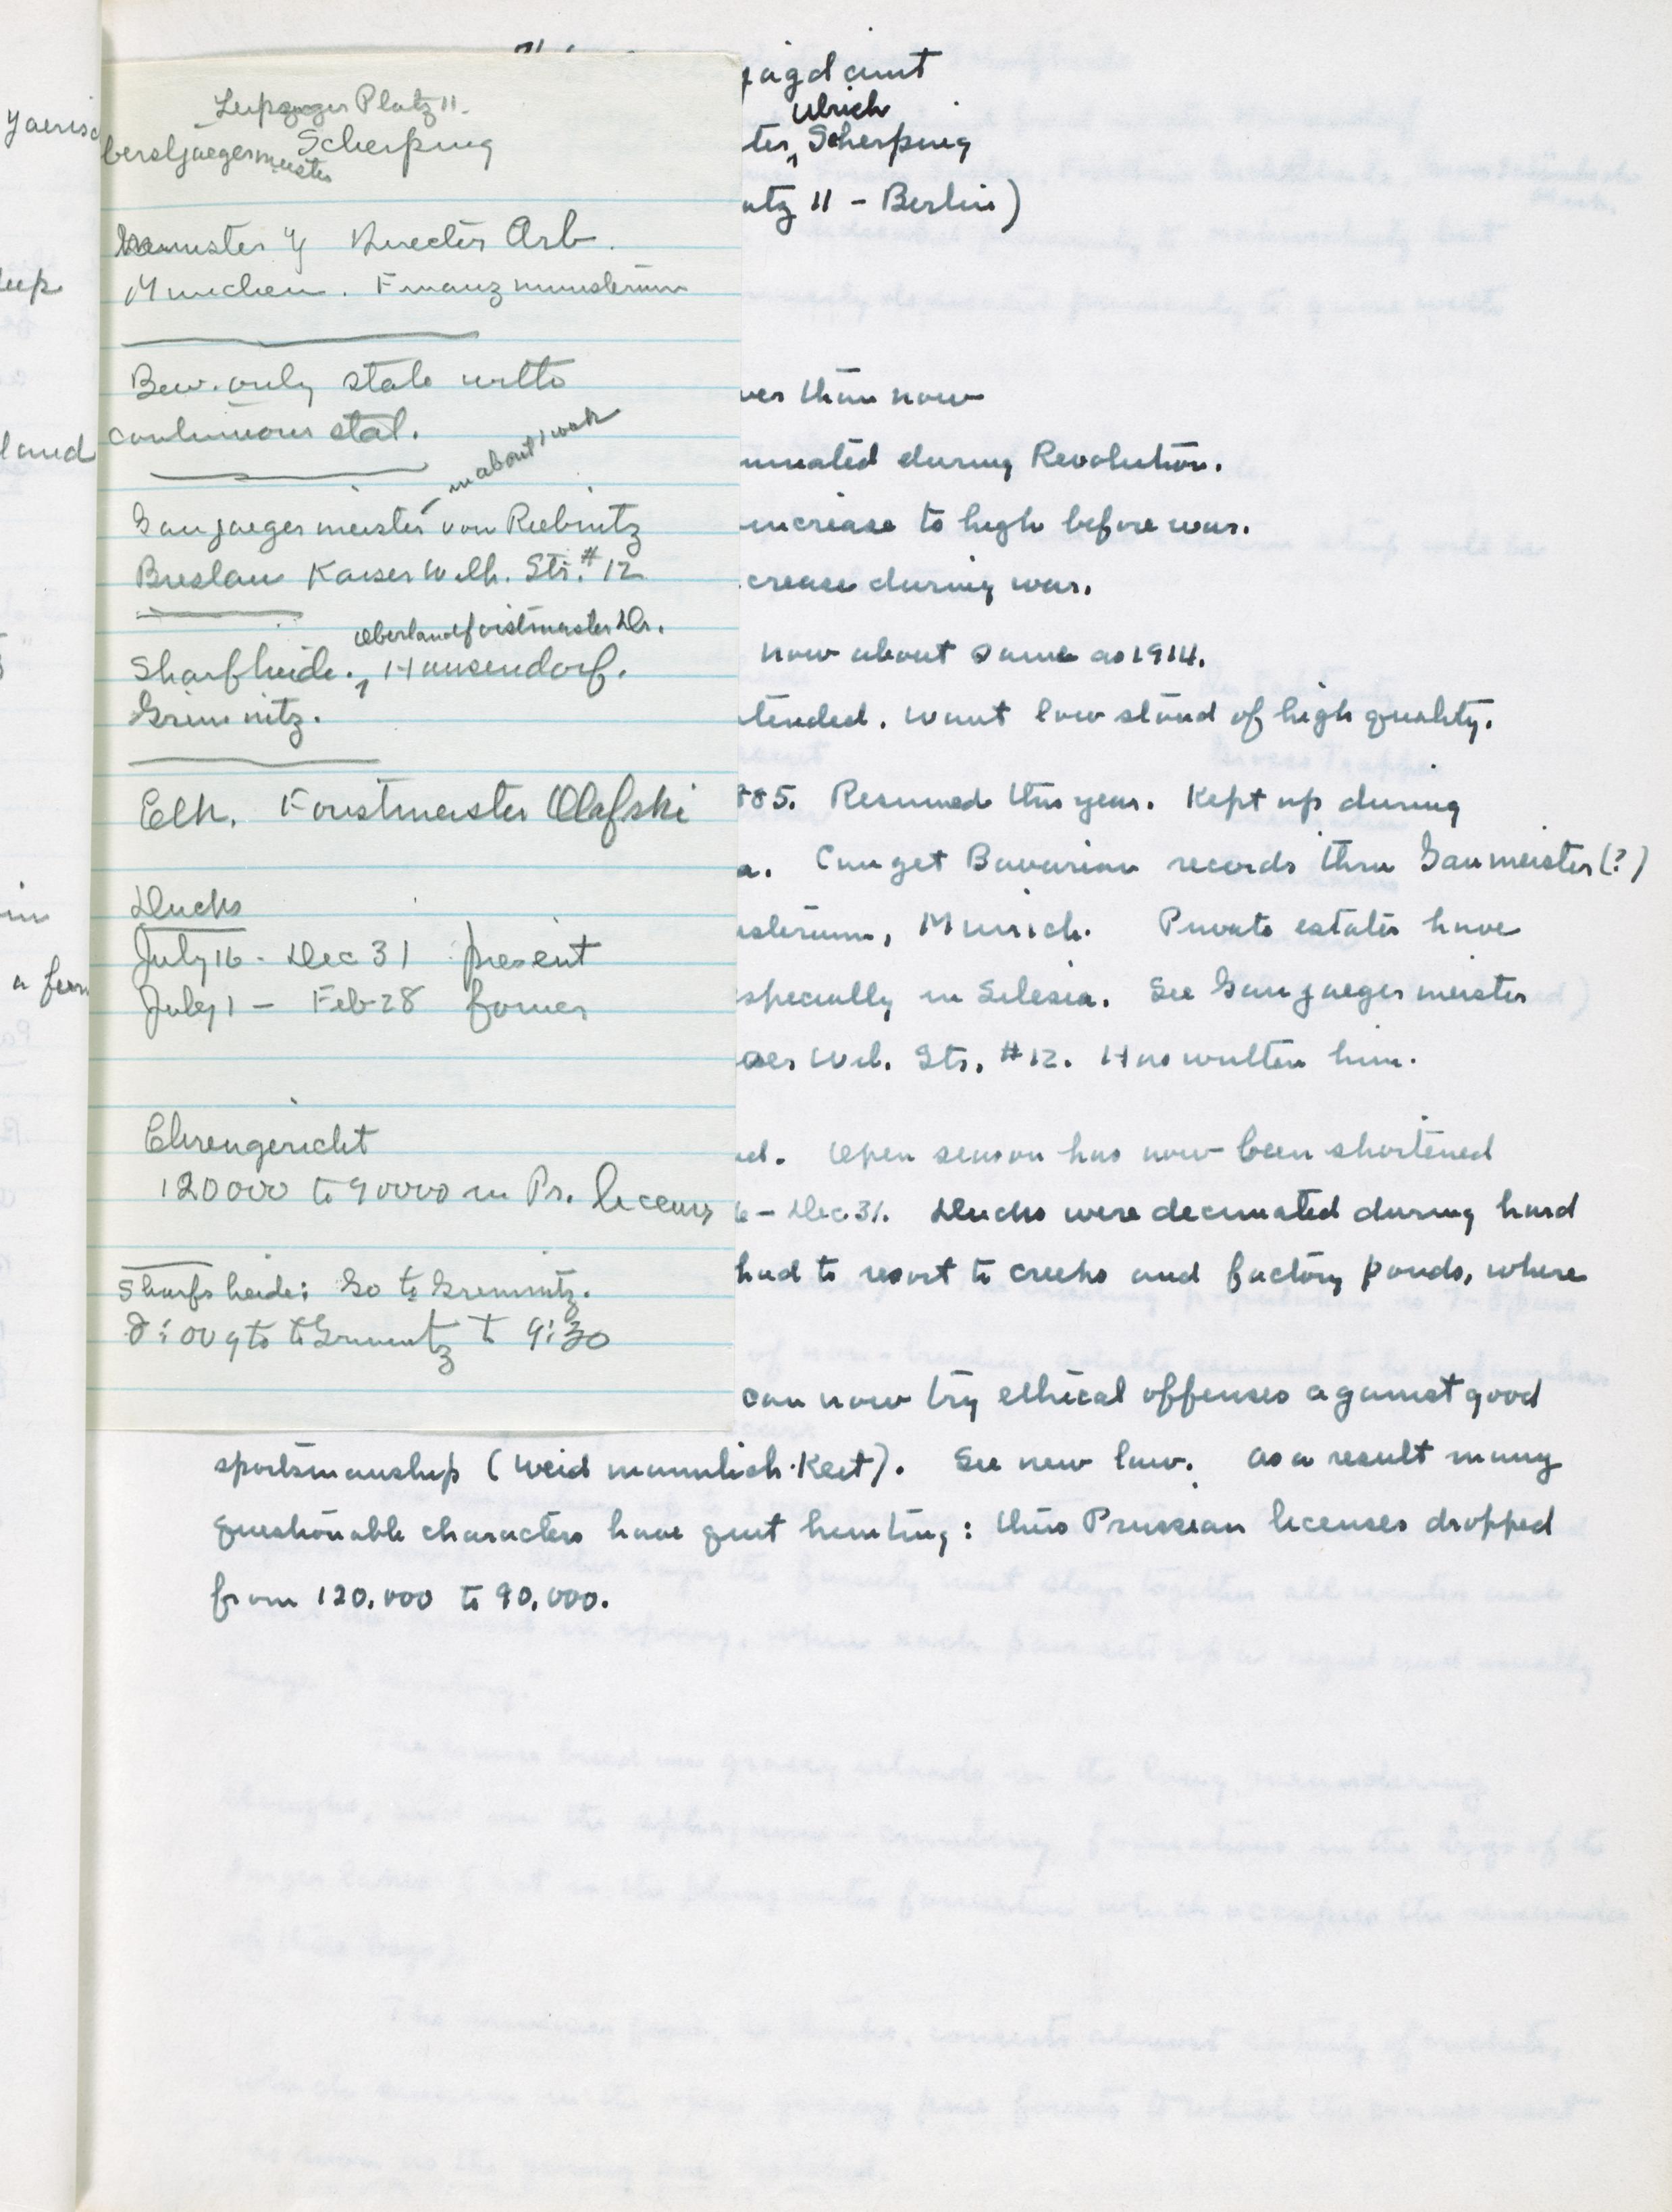 Leipzeger Platz 11.
Scherping
bersljaegermeister
Gaumeister & Director Arb.
Munchen. Finanzministerium
Bav. only state with
continuous stat.
in about 1 week
Gaujaegermeister von Reibnitz
Breslau Kaiser Wilh. Str. #12
Oberlandforstmeister Dr.
Sharfheide. Hausendorf.
Grimnitz.
Elk. Forstmeister Olafski
Ducks
July 16 - Dec 31 present
July 1 - Feb 28 former
Ehrengericht
120000 to 90000 in Pr. licenses
Sharfsheide: Go to Grimnitz.
8:00 to Grimnitz 9:30
jagdamt
Ulrich
ter, Scherping
atz 11 - Berlin)
ver than now
minated during Revolution.
increase to high before war.
crease during war.
now about same as 1914.
tended. Want low stand of high quality.
885. Resumed this year. Kept up during
a. Can get Bavarian records thru Gaumeister (?)
isterium, Munich. Private estates have
specially in Silesia. See Gaujaegermeister
iser Wil. Str. #12. Has written him.
ed. Open season has now been shortened
6 - Dec. 31. Ducks were decimated during hard
had to resort to creeks and factory ponds, where
can now try ethical offenses against good
sportsmanship (Weidmannlich-Keit). See new law. As a result many
questionable characters have quit hunting: thus Prussian licenses dropped
from 120,000 to 90,000.
yaeris
eup
land
in
a fern